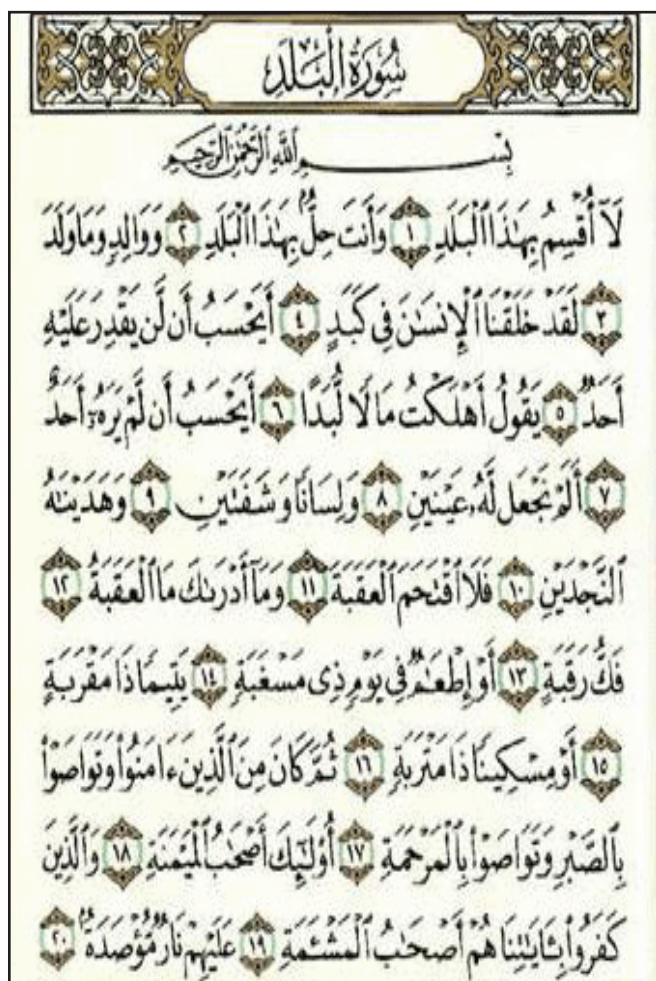 سُورَةُ الْبَلَدِ
بِسْمِ ٱللَّهِ ٱلرَّحْمَٰنِ ٱلرَّحِيمِ
لَآ أُقْسِمُ بِهَٰذَا ٱلْبَلَدِ ١ وَأَنتَ حِلٌّۢ بِهَٰذَا ٱلْبَلَدِ ٢ وَوَالِدٍ وَمَا وَلَدَ
٣ لَقَدْ خَلَقْنَا ٱلْإِنسَٰنَ فِى كَبَدٍ ٤ أَيَحْسَبُ أَن لَّن يَقْدِرَ عَلَيْهِ
أَحَدٌ ٥ يَقُولُ أَهْلَكْتُ مَالًا لُّبَدًا ٦ أَيَحْسَبُ أَن لَّمْ يَرَهُۥٓ أَحَدٌ
٧ أَلَمْ نَجْعَل لَّهُۥ عَيْنَيْنِ ٨ وَلِسَانًا وَشَفَتَيْنِ ٩ وَهَدَيْنَٰهُ
ٱلنَّجْدَيْنِ ١٠ فَلَا ٱقْتَحَمَ ٱلْعَقَبَةَ ١١ وَمَآ أَدْرَىٰكَ مَا ٱلْعَقَبَةُ ١٢
فَكُّ رَقَبَةٍ ١٣ أَوْ إِطْعَٰمٌ فِى يَوْمٍ ذِى مَسْغَبَةٍ ١٤ يَتِيمًا ذَا مَقْرَبَةٍ
١٥ أَوْ مِسْكِينًا ذَا مَتْرَبَةٍ ١٦ ثُمَّ كَانَ مِنَ ٱلَّذِينَ ءَامَنُوا۟ وَتَوَاصَوْا۟
بِٱلصَّبْرِ وَتَوَاصَوْا۟ بِٱلْمَرْحَمَةِ ١٧ أُو۟لَٰٓئِكَ أَصْحَٰبُ ٱلْمَيْمَنَةِ ١٨ وَٱلَّذِينَ
كَفَرُوا۟ بِـَٔايَٰتِنَا هُمْ أَصْحَٰبُ ٱلْمَشْـَٔمَةِ ١٩ عَلَيْهِمْ نَارٌ مُّؤْصَدَةٌۢ ٢٠